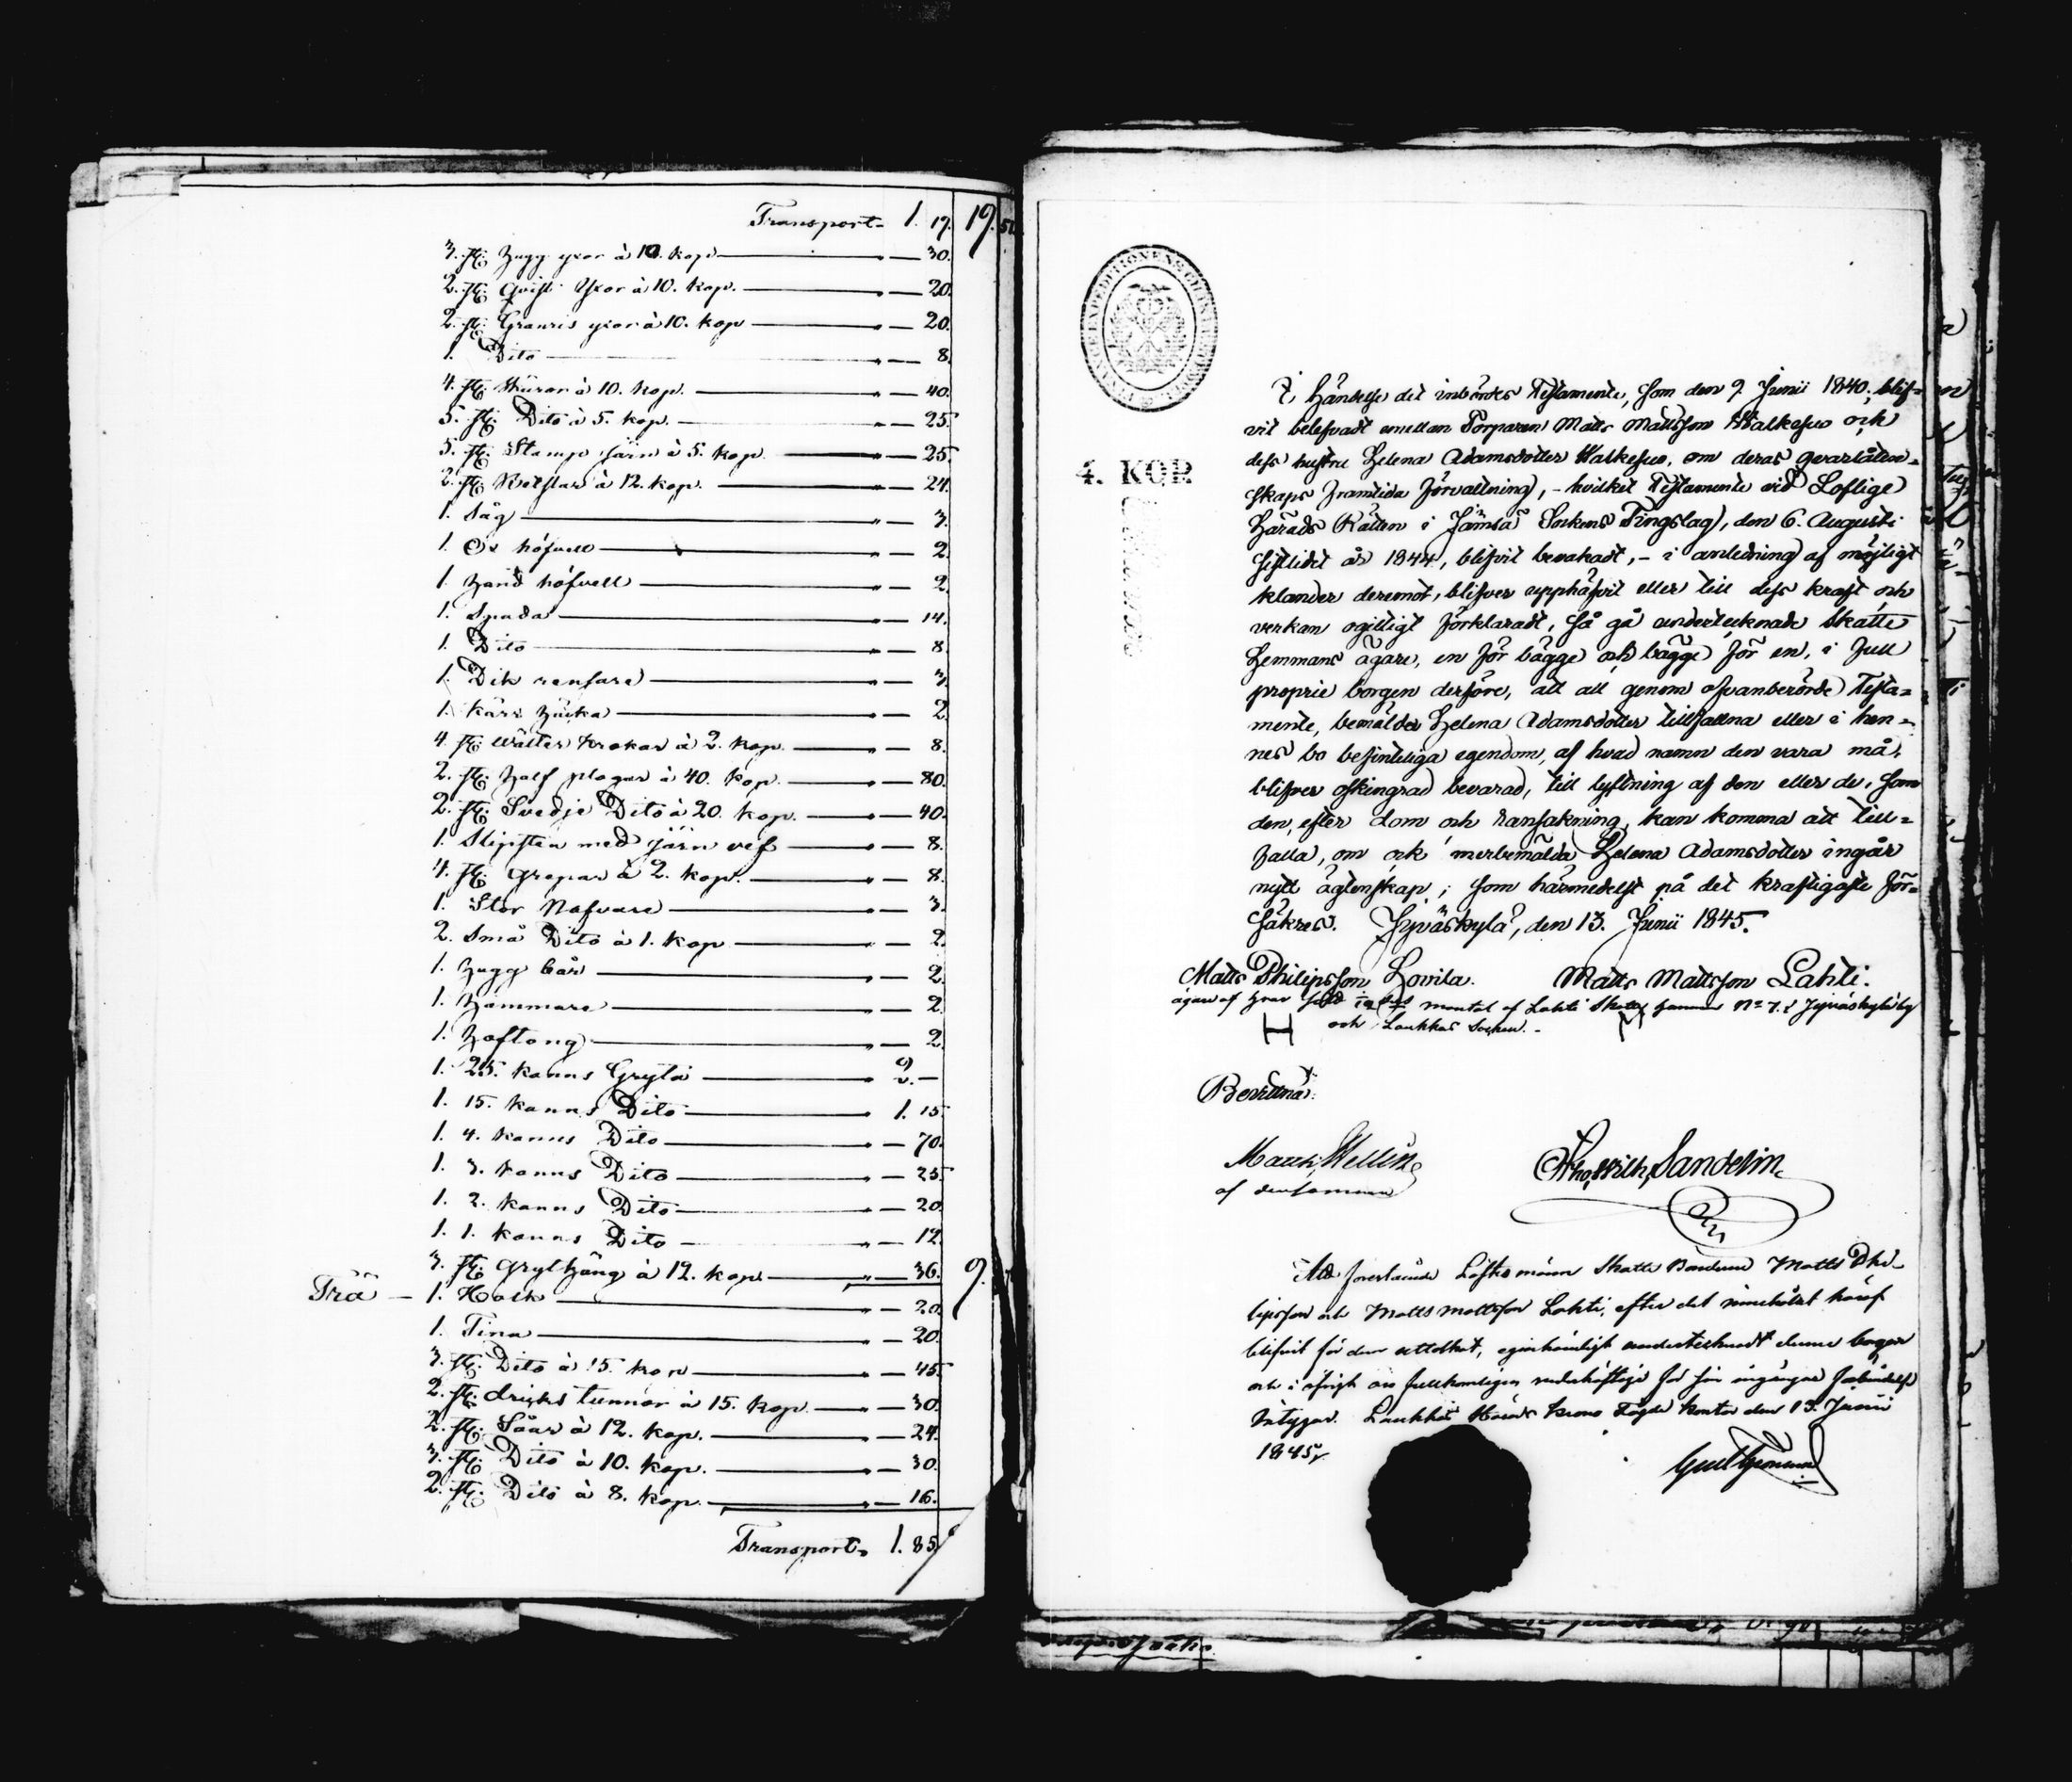 Transport. 1. 19. 19. 50
3. st. Hugg yxor à 10. kop — 30.
2. st. Qvist Yxor à 10. kop. — 20.
2. st. Granris yxor à 10. kop — 20.
1. Dito — 8.
4. st. Skäror à 10. kop. — 40.
5. st. Dito à 5. kop. — 25.
5. st. Stamp järn à 5. kop. — 25.
2. st. à 12. kop. — 24.
1. Såg — 3.
1. Ox höfvell — 2.
1. Hand höfvell — 2.
1. Spada — 14.
1. Dito — 8.
1. Dik rensare — 3.
1. Kärr — 2.
4. st. Wälter krokar à 2. kop. — 8.
2. st. Half plogar à 40. kop. — 80.
2. st. Svedje Dito à 20. kop. — 40.
1. Slipsten med järn vef — 8.
4. st. Grepar à 2. kop. — 8.
1. Stor Nafvare — 3.
2. Små Dito à 1. kop — 2.
1. Hugg bår — 2.
1. Hammare — 2.
1. Hoftong — 2.
1. 25. kanns Gryta — 2. —
1. 15. kanns Dito — 1. 15.
1. 4. kanns Dito — 70.
1. 3. kanns Dito — 25.
1. 2. kanns Dito — 20.
1. 1. kanns Dito — 12.
3. st. Grythäng à 12. kop. — 36. 9.
Trä — 1. — 20.
1. Tina — 20.
3. st. Dito à 15. kop — 45.
2. st. dricks tunnor à 15. kop. — 30.
2. st. Såar à 12. kop. — 24.
3. st. Dito à 10. kop. — 30.
2. st. Dito à 8. kop. — 16.
Transport. 1. 85.
4. KOP.
I händelse det inbördes Testamente, som den 9 Junii 1840. blif-
vit belefvadt emellan Torparen Matts Mattsson Walkesuo och
dess hustru Helena Adamsdotter Walkesuo, om deras qvarlåten-
skaps framtida förvaltning, - hvilket Testamente vid Loflige
Härads Rätten i Jämsä Sockens Tingslag, den 6. Augusti
sistlidet år 1844, blifvit bevakadt, - i anledning af möjligt
klander deremot, blifver upphäfvit eller till dess kraft och
verkan ogilligt förklaradt, så gå undertecknade Skatte
Hemmans ägare, en för bägge och bägge för en, i full
proprie borgen derföre, att all genom ofvanberörde Testa-
mente, bemälde Helena Adamsdotter tillfallna eller i hen-
nes bo befintliga egendom, af hvad namn den vara må,
blifver oskingrad bevarad, till lyftning af den eller de, som
den, efter dom och ransakning, kan komma att till-
falla, om ock merbemälda Helena Adamsdotter ingår
nytt ägtenskap; som härmedelst på det kraftigaste för-
säkres. Jyväskylä, den 13. Junii 1845.
Matts Philipsson Lovila. Matts Mattsson Lahti.
ägare af hvar sitt mantal af Lahti Skatte hemman No 7. i Jyväskylä by
och Laukkas Socken. -
Bevittna:
Matts Wellin Wilh. Sandelin
af densamma
Att förestående Löftesmän Skatte Bonderne Matts Phi-
lipsson och Matts Mattsson Lahti, efter det innehållet häraf
blifvit för dem uttolkat, egenhändigt undertecknadt denna borgen
och i öfrigt äro fullkomligen vederhäftige för sin ingångna förbindelse
intygar. Laukkas Härads Krono Fogde kontor den 13. Junii
1845.